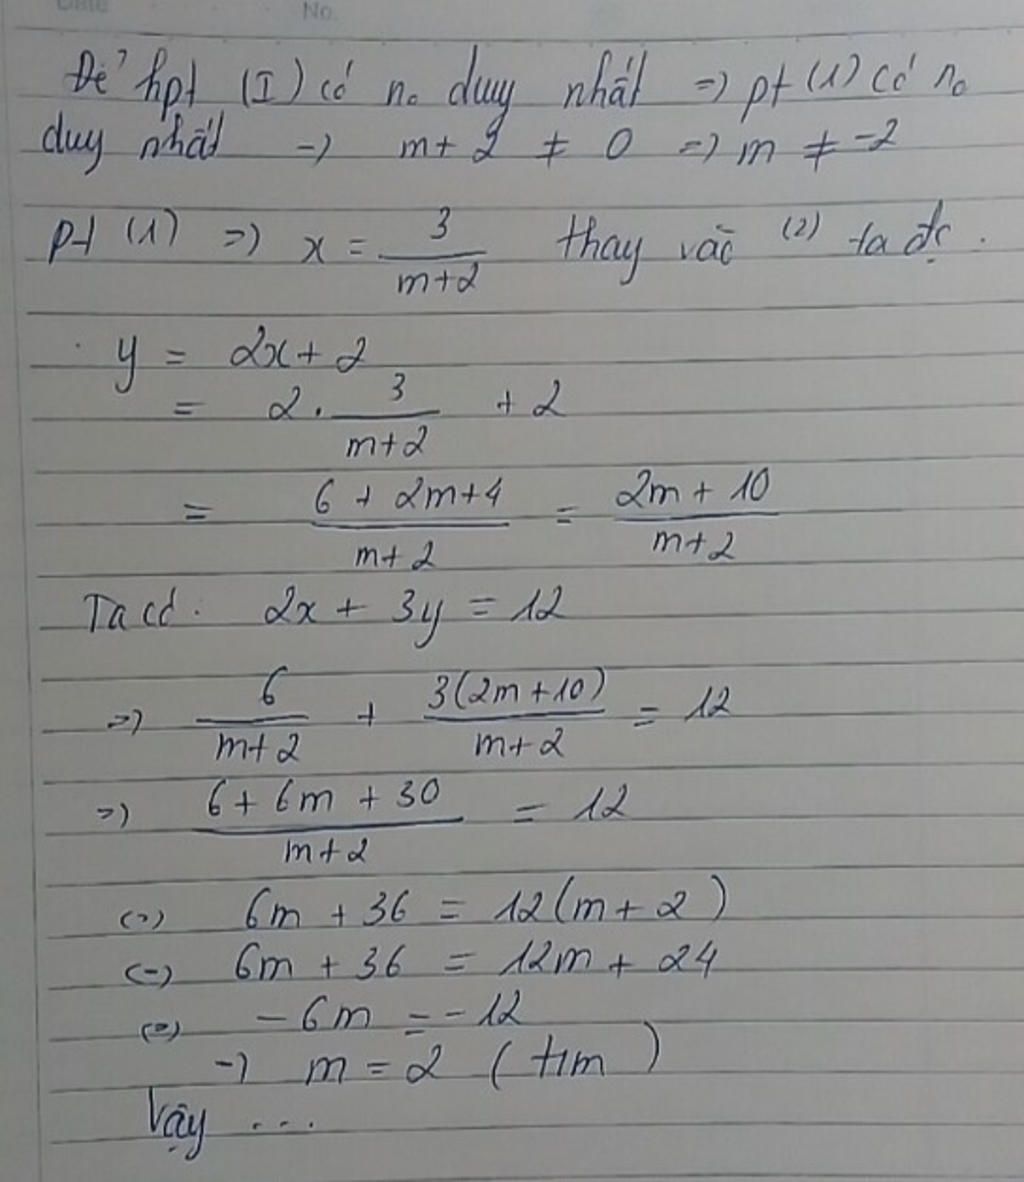 No.
Để hpt (I) có no duy nhất => pt (1) có no
duy nhất => m + 2 ≠ 0 => m ≠ -2
pt (1) => x = 3/(m+2) thay vào (2) ta đc.
y = 2x + 2
= 2 . 3/(m+2) + 2
= (6 + 2m + 4)/(m+2) = (2m + 10)/(m+2)
Ta có: 2x + 3y = 12
=> 6/(m+2) + 3(2m+10)/(m+2) = 12
=> (6 + 6m + 30)/(m+2) = 12
<=> 6m + 36 = 12(m + 2)
<=> 6m + 36 = 12m + 24
<=> -6m = -12
=> m = 2 (t/m)
Vậy ...